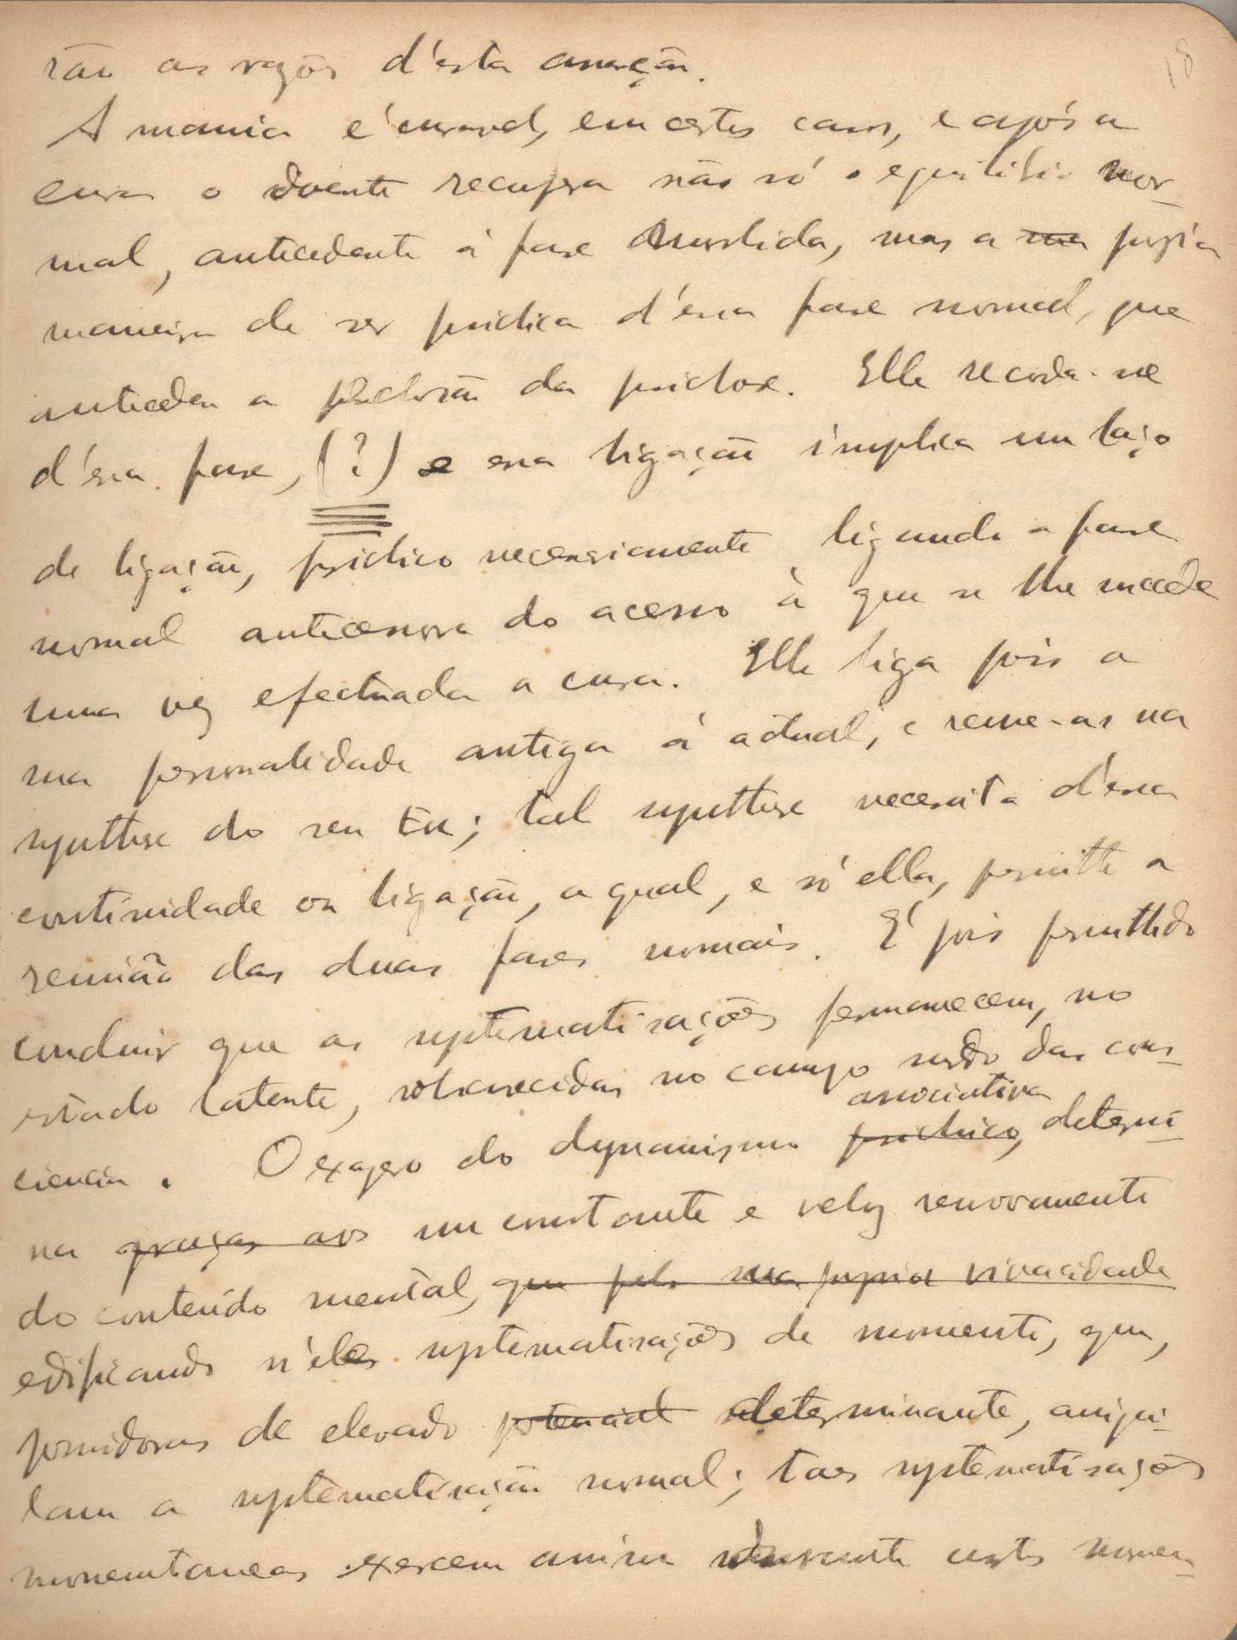 18
rão as razões d'esta asserção.
A mania é curavel, em certos casos, e após a
cura o doente recupera não só o equilibrio nor-
mal, antecedente á fase morbida, mas a sua propria
maneira de ser psichica d'essa fase normal, que
antecedeu a eclosão da psichose. Elle recorda-se
d'essa fase, (?) e essa ligação implica um laço
de ligação, psichico necessariamente ligando a fase
normal antecessora do acesso à que se lhe succede
uma vez efectuada a cura. Elle liga pois a
sua personalidade antiga á actual, e reune-as na
synthese do seu Eu; tal synthese necessita d'essa
continuidade ou ligação, a qual, e só ella, permitte a
reunião das duas fases normais. É pois permittido
concluir que as systematisações permanecem, no
estado latente, obscurecidas no campo das cons-
ciencia. O exagero do dynamismo psichico, associativa determi-
na graças aos um constante e veloz renovamento
do conteúdo mental, que pela sua propria vivacidade
edificando n'elles systematisações de momento, que,
possuidoras de elevado potencial determinante, aniqui-
lam a systematisação normal; taes systematisações
momentaneas exercem assim durante certos momen-